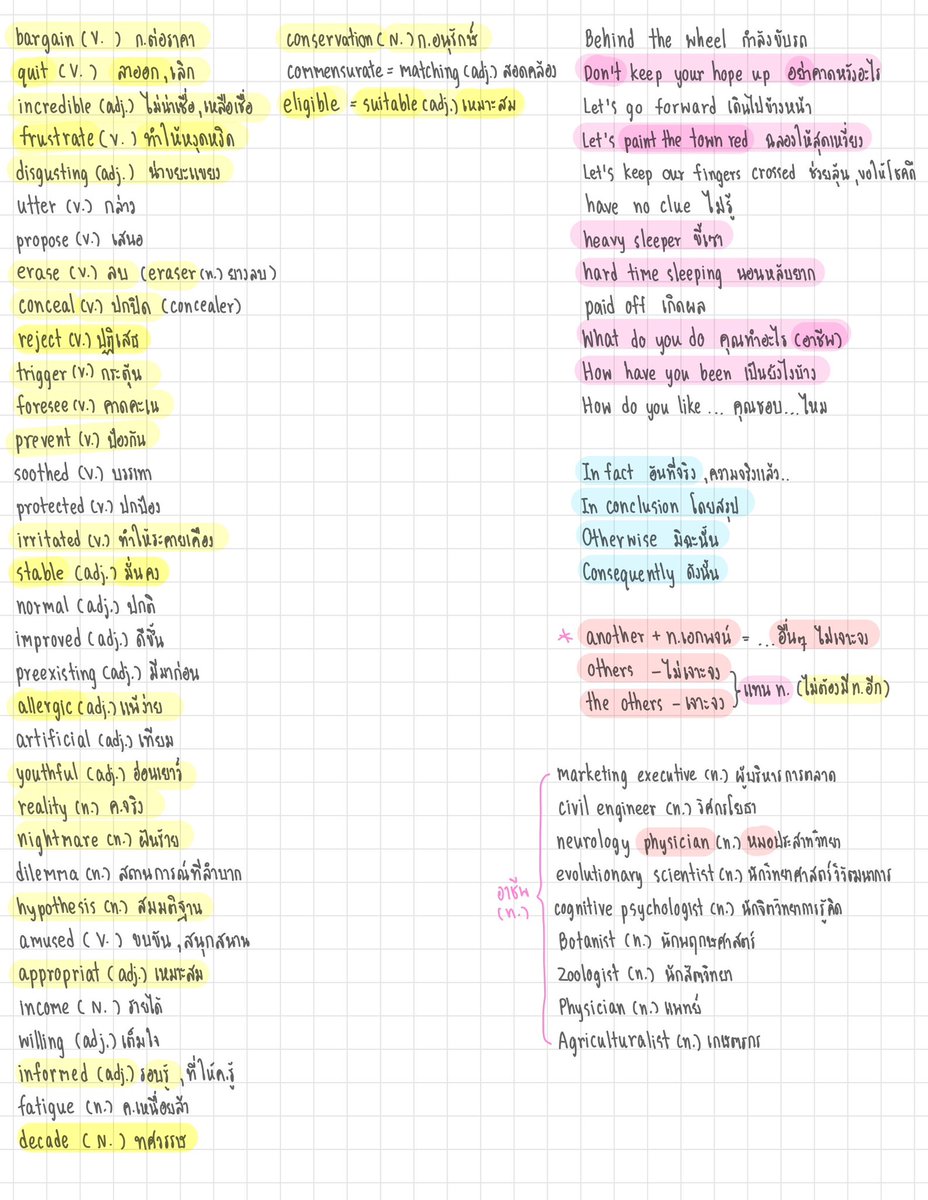 bargain (V. ) ก.ต่อราคา
quit (V. ) ลาออก,เลิก
incredible (adj.) ไม่น่าเชื่อ,เหลือเชื่อ
frustrate (v. ) ทำให้หงุดหงิด
disgusting (adj.) น่าขยะแขยง
utter (v.) กล่าว
propose (v.) เสนอ
erase (v.) ลบ (eraser (n.) ยางลบ)
conceal (v.) ปกปิด (concealer)
reject (v.) ปฏิเสธ
trigger (v.) กระตุ้น
foresee (v.) คาดคะเน
prevent (v.) ป้องกัน
soothed (v.) บรรเทา
protected (v.) ปกป้อง
irritated (v.) ทำให้ระคายเคือง
stable (adj.) มั่นคง
normal (adj.) ปกติ
improved (adj.) ดีขึ้น
preexisting (adj.) มีมาก่อน
allergic (adj.) แพ้ง่าย
artificial (adj.) เทียม
youthful (adj.) อ่อนเยาว์
reality (n.) ค.จริง
nightmare (n.) ฝันร้าย
dilemma (n.) สถานการณ์ที่ลำบาก
hypothesis (n.) สมมติฐาน
amused ( V. ) ขบขัน ,สนุกสนาน
appropriat (adj.) เหมาะสม
Income ( N. ) รายได้
willing (adj.) เต็มใจ
informed (adj.) รอบรู้ ,ที่ให้ค.รู้
fatigue (n.) ค.เหนื่อยล้า
decade ( N. ) ทศวรรษ
conservation ( N.) ก.อนุรักษ์
commensurate = matching (adj.) สอดคล้อง
eligible = suitable (adj.) เหมาะสม
Behind the wheel กำลังขับรถ
Don't keep your hope up อย่าคาดหวังอะไร
Let's go forward เดินไปข้างหน้า
Let's paint the town red ฉลองให้สุดเหวี่ยง
Let's keep our fingers crossed ช่วยลุ้น ,ขอให้โชคดี
have no clue ไม่รู้
heavy sleeper ขี้เซา
hard time sleeping นอนหลับยาก
paid off เกิดผล
What do you do คุณทำอะไร (อาชีพ)
How have you been เป็นยังไงบ้าง
How do you like ... คุณชอบ...ไหม
In fact อันที่จริง ,ความจริงแล้ว..
In conclusion โดยสรุป
Otherwise มิฉะนั้น
Consequently ดังนั้น
* another + n.เอกพจน์ = ...อื่นๆ ไม่เจาะจง
others - ไม่เจาะจง
the others - เจาะจง
แทน n. (ไม่ต้องมี n.อีก)
อาชีพ
(n.)
marketing executive (n.) ผู้บริหารการตลาด
civil engineer (n.) วิศกรโยธา
neurology physician (n.) หมอประสาทวิทยา
evolutionary scientist (n.) นักวิทยาศาสตร์วิวัฒนาการ
cognitive psychologist (n.) นักจิตวิทยาการรู้คิด
Botanist (n.) นักพฤกษศาสตร์
Zoologist (n.) นักสัตวิทยา
Physician (n.) แพทย์
Agriculturalist (n.) เกษตรกร